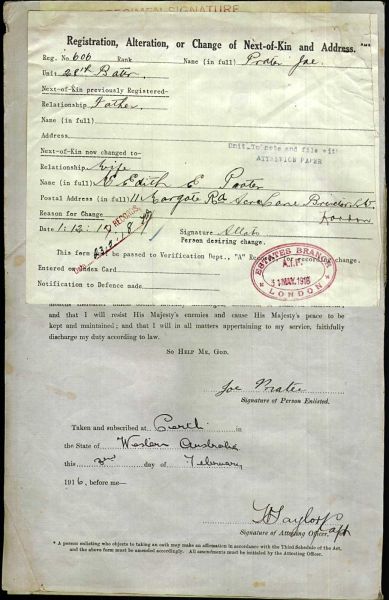 SPECIMEN SIGNATURE
Registration, Alteration, or Change of Next-of-Kin and Address.
Reg. No. 606 Rank Name (in full) Prater Joe
Unit 28th Batn.
Next-of-Kin previously Registered—
Relationship Father
Name (in full)
Address
Unit To note and file with
ATTESTION PAPER
Next-of-Kin now changed to—
Relationship Wife
Name (in full) Edith E
Postal Address (in full) 11 Margate Rd
London
Reason for Change
RECORDS.
Date 1.12.17
Signature
Person desiring change.
This form to be passed to Verification Dept., "A" Records for recording change.
Entered on Index Card
Notification to Defence made.
ESTATES BRANCH
A.I.F.
31 MAY. 1918
LONDON
and that I will resist His Majesty's enemies and cause His Majesty's peace to be
kept and maintained; and that I will in all matters appertaining to my service, faithfully
discharge my duty according to law.
So Help Me, God.
Joe Prater
Signature of Person Enlisted.
Taken and subscribed at Perth in
the State of Western Australia
this day of February
1916, before me—
Taylor Capt
Signature of Attesting Officer.
* A person enlisting who objects to taking an oath may make an affirmation in accordance with the Third Schedule of the Act,
and the above form must be amended accordingly. All amendments must be initialled by the Attesting Officer.